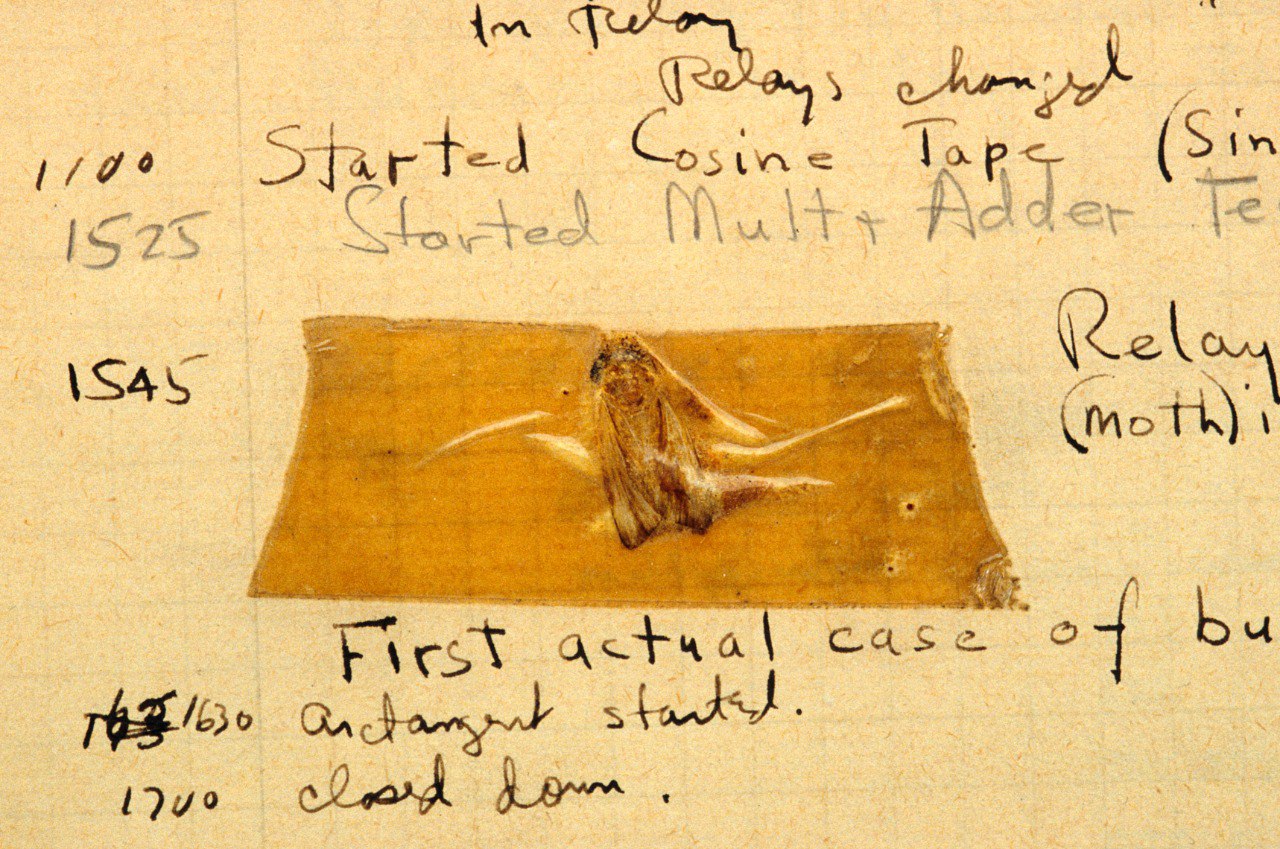 In Relay
Relays changed
1100 Started Cosine Tape (Sin
1525 Started Mult+ Adder Te
1545 Relay
(moth) i
First actual case of bu
1630 arctangent started.
1700 closed down.